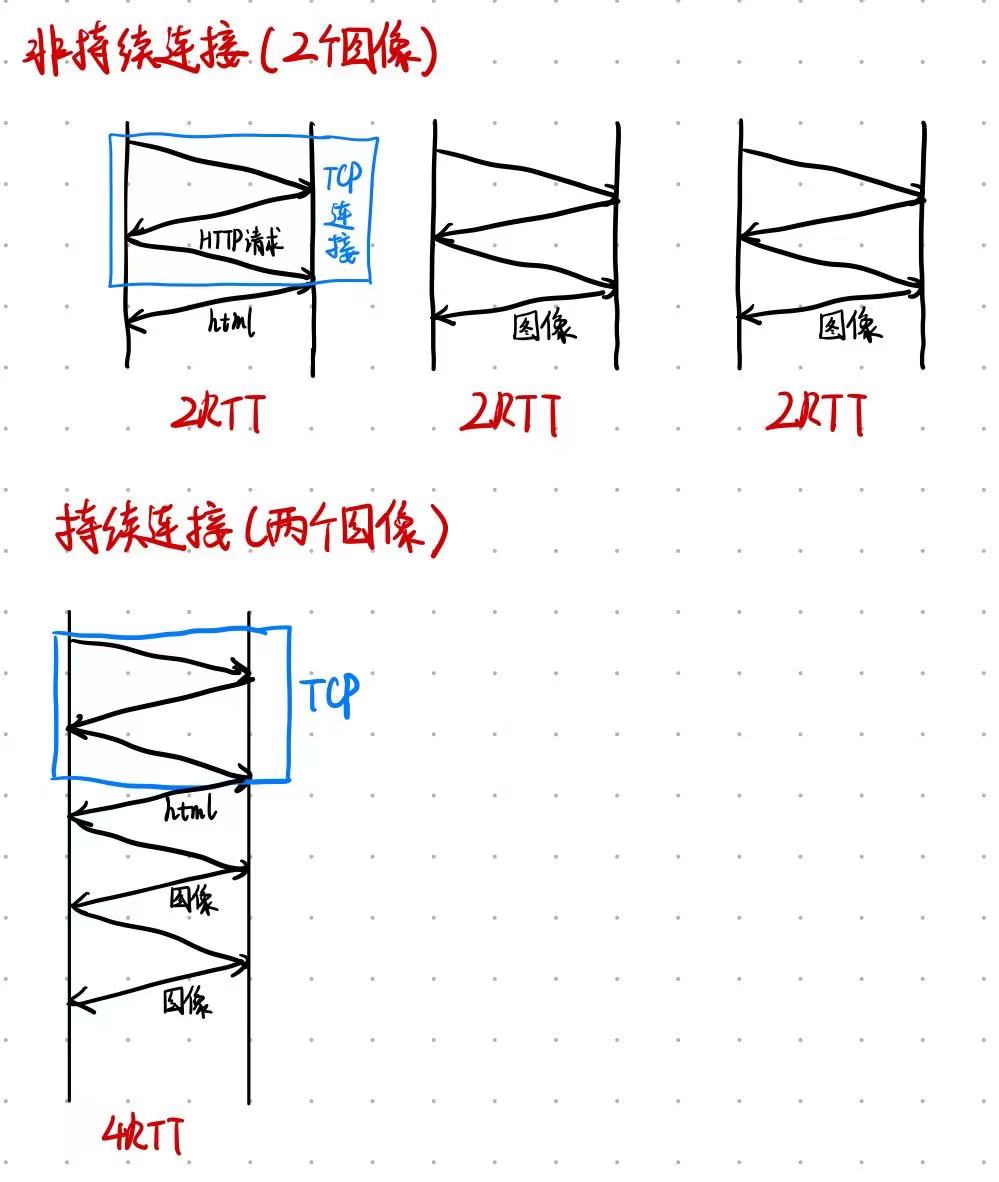 非持续连接(2个图像)
TCP
连
接
HTTP请求
html
图像
图像
2RTT
2RTT
2RTT
持续连接(两个图像)
TCP
html
图像
图像
4RTT